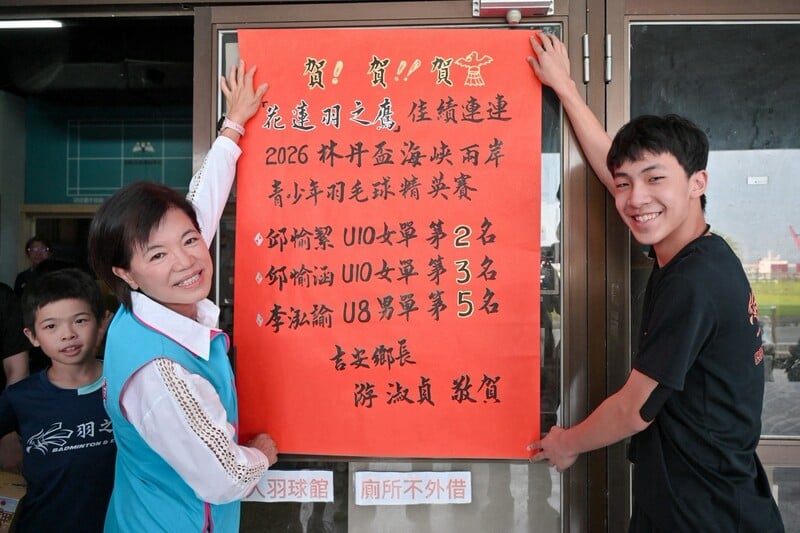 賀! 賀!! 賀
「花蓮羽之鷹 佳績連連
2026 林丹盃海峽兩岸
青少年羽毛球精英賽
邱愉絜 U10女單 第2名
邱愉涵 U10女單 第3名
李泓諭 U8男單 第5名
吉安鄉長
游淑貞 敬賀
人羽球館
廁所不外借
羽之
BADMINTON &